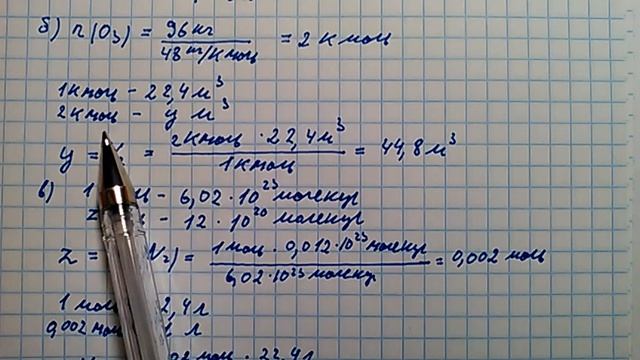 б) n(O₃) = 96 кг / 48 кг/кмоль = 2 кмоль
1 кмоль - 22,4 м³
2 кмоль - y м³
y = = 2 кмоль · 22,4 м³ / 1 кмоль = 44,8 м³
в) 1 - 6,02 · 10²³ молекул
z - 12 · 10²⁰ молекул
z = N₂) = 1 моль · 0,012 · 10²³ молекул / 6,02 · 10²³ молекул = 0,002 моль
1 моль 2,4 л
0,002 моль л
моль · 22,4 л